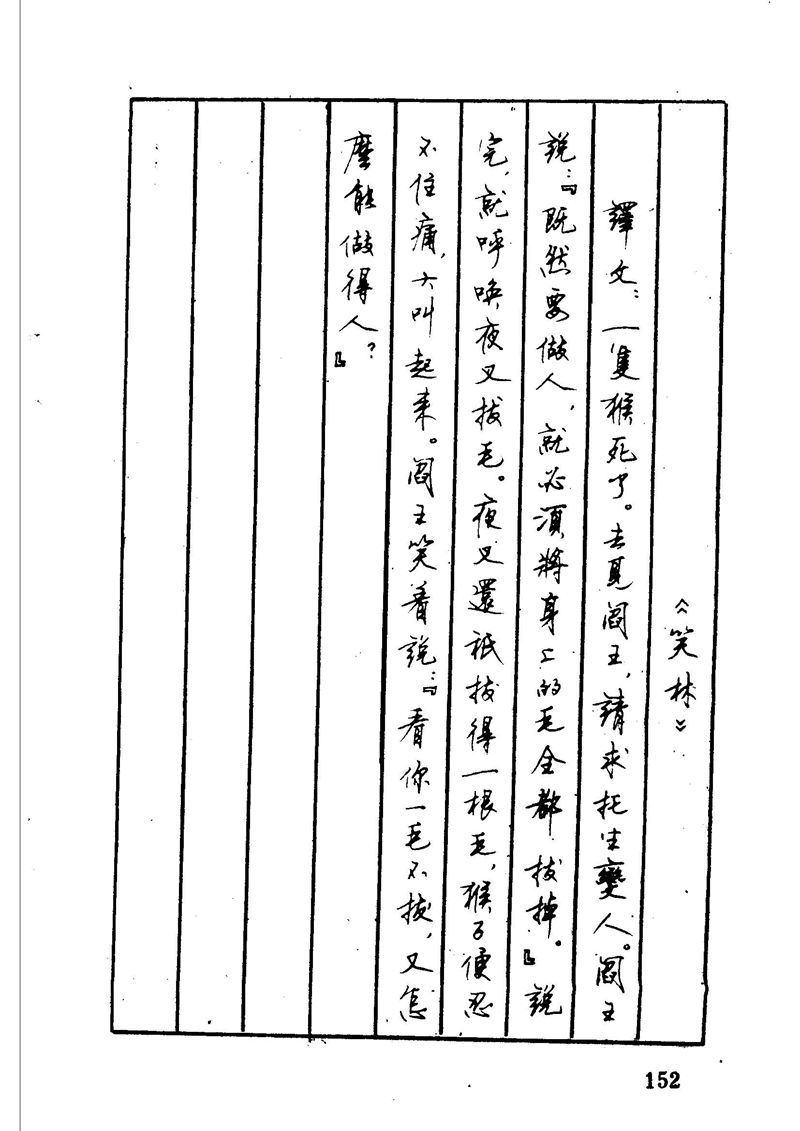 《笑林》
譯文：一隻猴死了。去見閻王，請求托生變人。閻王
說：『既然要做人，就必須將身上的毛全都拔掉。』說
完，就呼喚夜叉拔毛。夜叉還祇拔得一根毛，猴子便忍
不住痛，大叫起来。閻王笑着說：『看你一毛不拔，又怎
麼能做得人？』
152